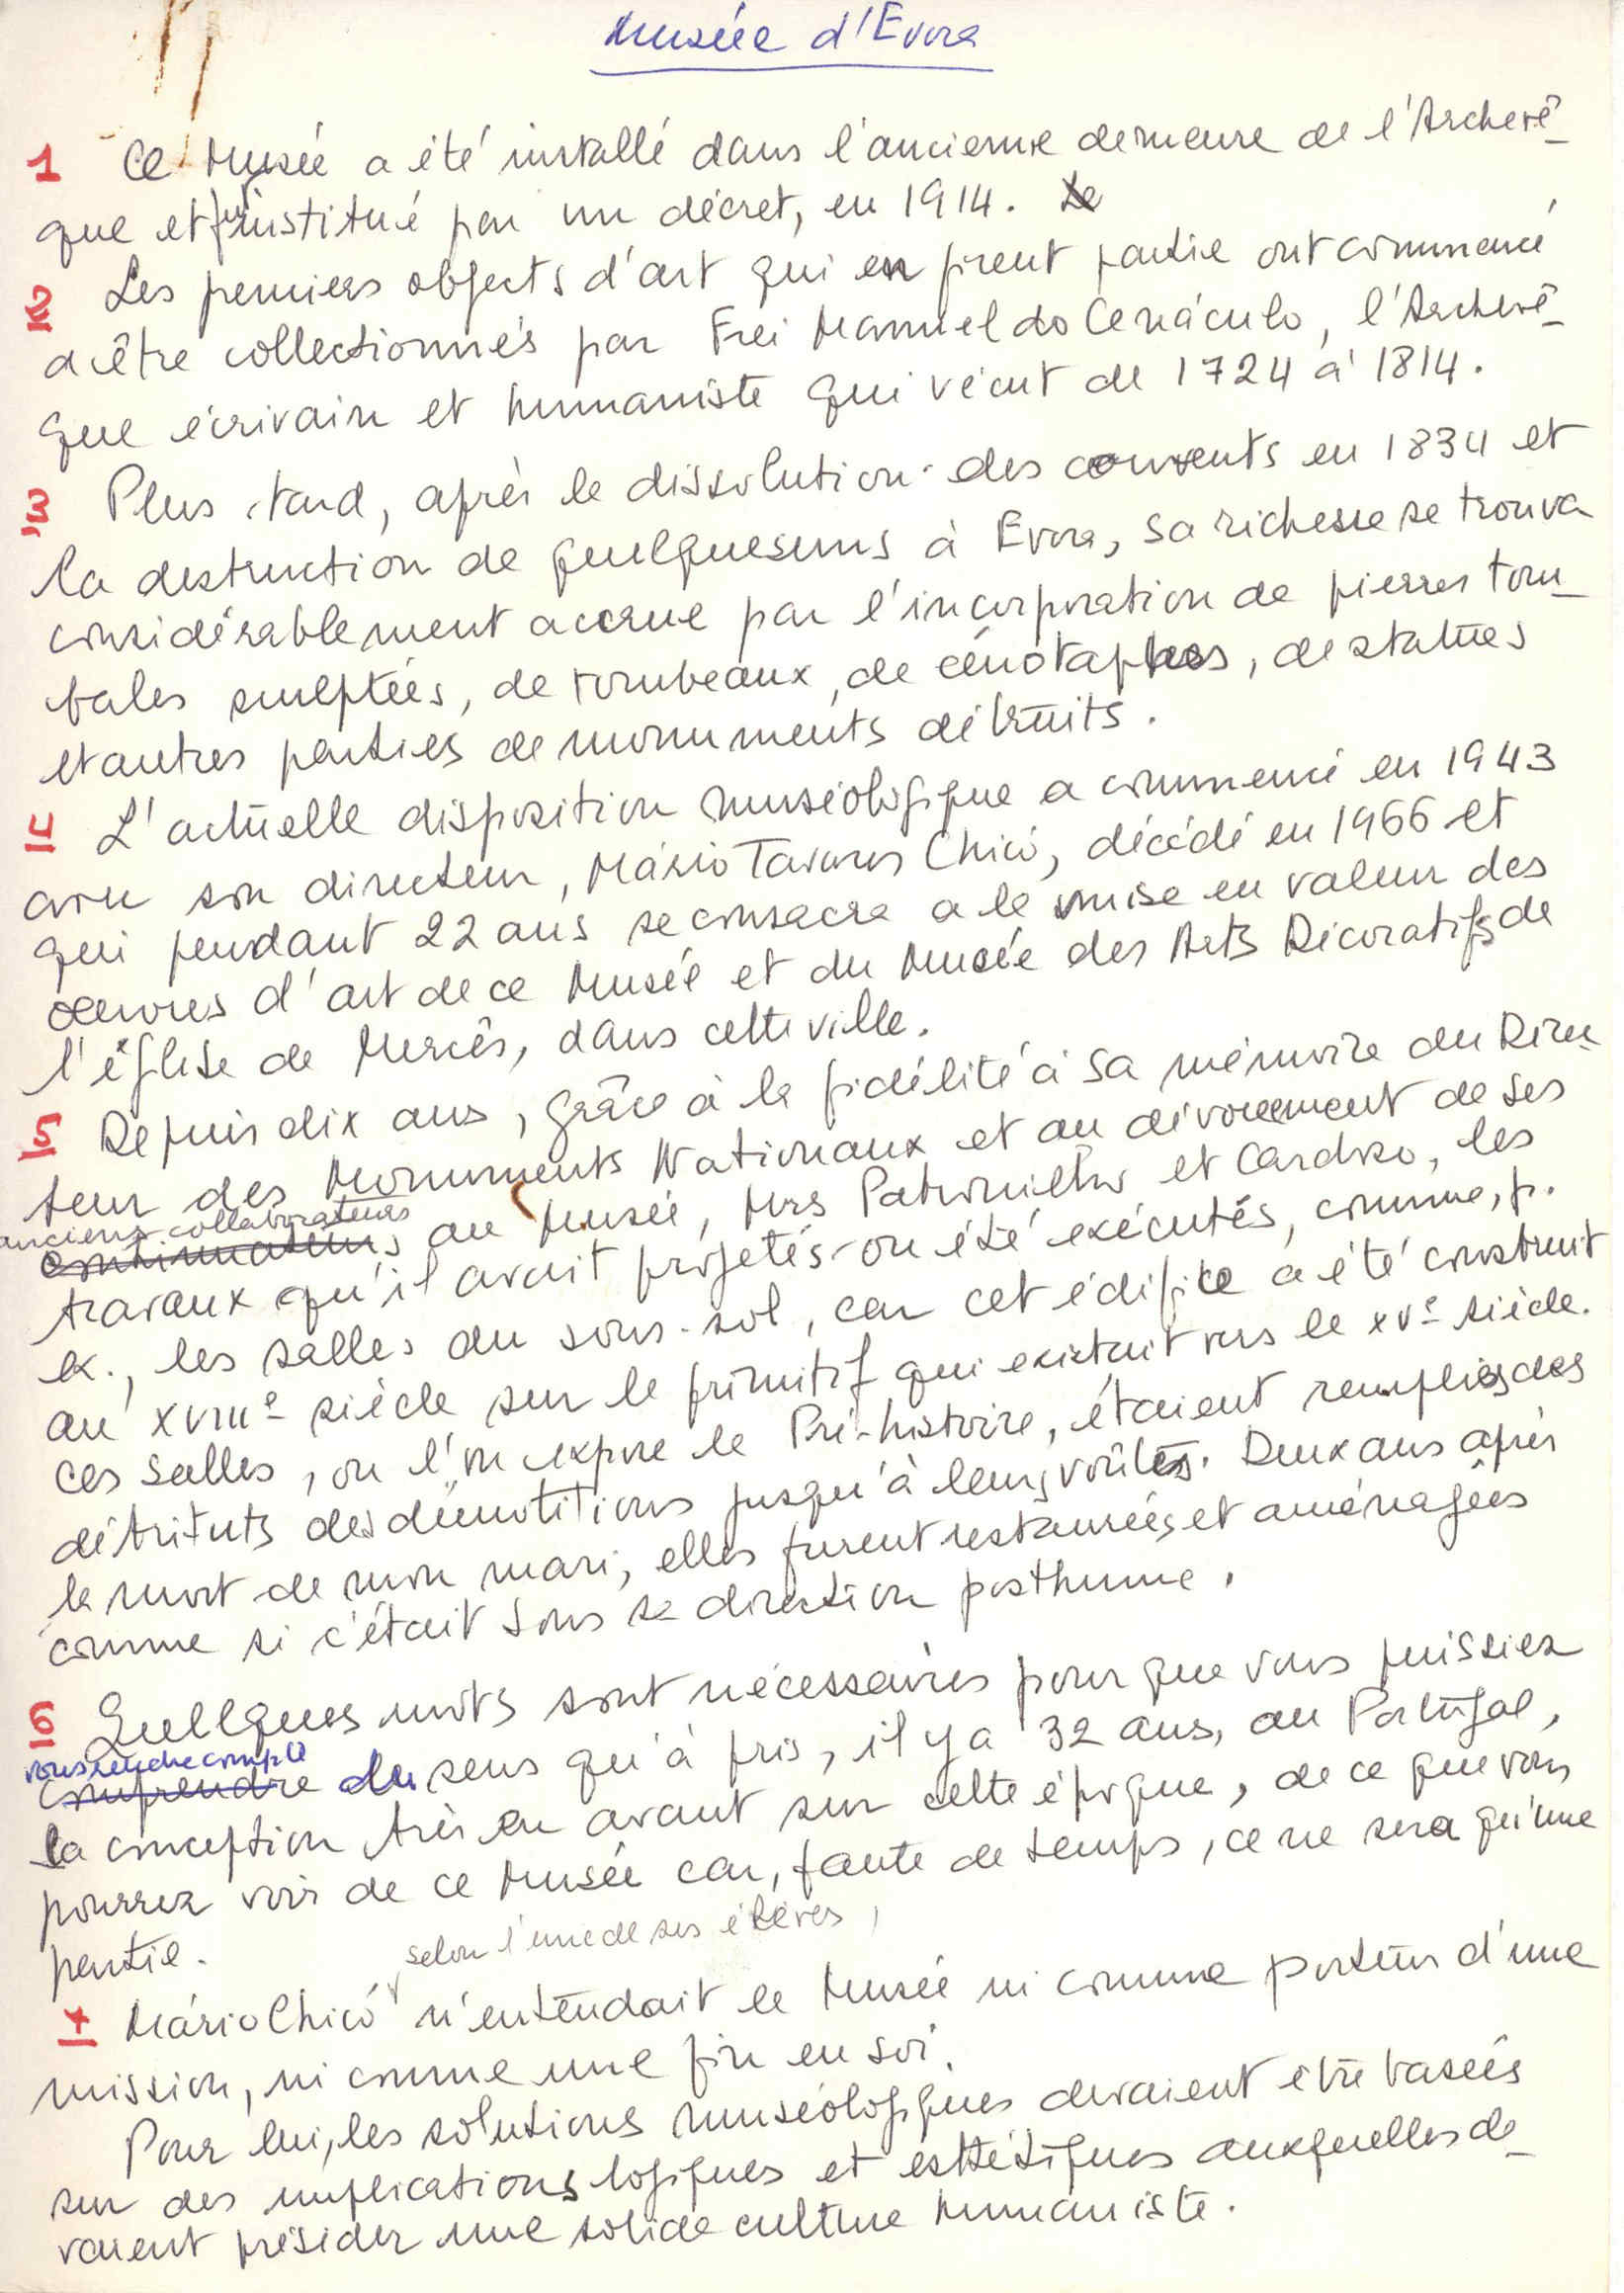 Musée d'Evora
1 Ce Musée a été installé dans l'ancienne demeure de l'Archevê-
que et fut institué par un décret, en 1914. Le
2 Les premiers objects d'art qui en firent partie ont commencé
a être collectionnés par Frei Manuel do Cenáculo, l'Archevê-
que écrivain et humaniste qui vécut de 1724 à 1814.
3 Plus tard, après la dissolution des couvents en 1834 et
la destruction de quelquesuns à Evora, sa richesse se trouva
considérablement accrue par l'incorporation de pierres tom-
bales sculptées, de tombeaux, de cénotaphes, de statues
et autres parties de monuments détruits.
4 L'actuelle disposition muséologique a commencé en 1943
avec son directeur, Mário Tavares Chicó, décédé en 1966 et
qui pendant 22 ans se consacra a la mise en valeur des
oeuvres d'art de ce Musée et du Musée des Arts Décoratifs de
l'église de Mercês, dans cette ville.
5 Depuis dix ans, grâce à la fidélité à sa mémoire du Direc-
teur des Monuments Nationaux et au dévouement de ses
anciens collaborateurs
au Musée, Mrs Patrocinho et Cardoso, les
travaux qu'il avait projetés on été exécutés, comme, p.
ex., les salles du sous-sol, car cet édifice a été construit
au XVIIIe siècle sur le primitif qui existait vers le XVe siècle.
Ces salles, ou l'on expose la Pré-histoire, étaient remplies des
détrituts des démolitions jusqu'à leurs voûtes. Deux ans après
la mort de mon mari, elles furent restaurées et aménagées
comme si c'était sous sa direction posthume.
6 Quellques mots sont nécessaires pour que vous puissiez
vous rendre compte
comprendre du sens qu'à pris, il y a 32 ans, au Portugal,
la conception très en avant sur cette époque, de ce que vous
pourrez voir de ce Musée car, faute de temps, ce ne sera qu'une
partie.
selon l'une de ses élèves,
7 Mário Chicó n'entendait le Musée ni comme porteur d'une
mission, ni comme une fin en soi.
Pour lui, les solutions muséologiques devraient être basées
sur des implications logiques et esthétiques auxquelles de-
vaient présider une solide culture humaniste.